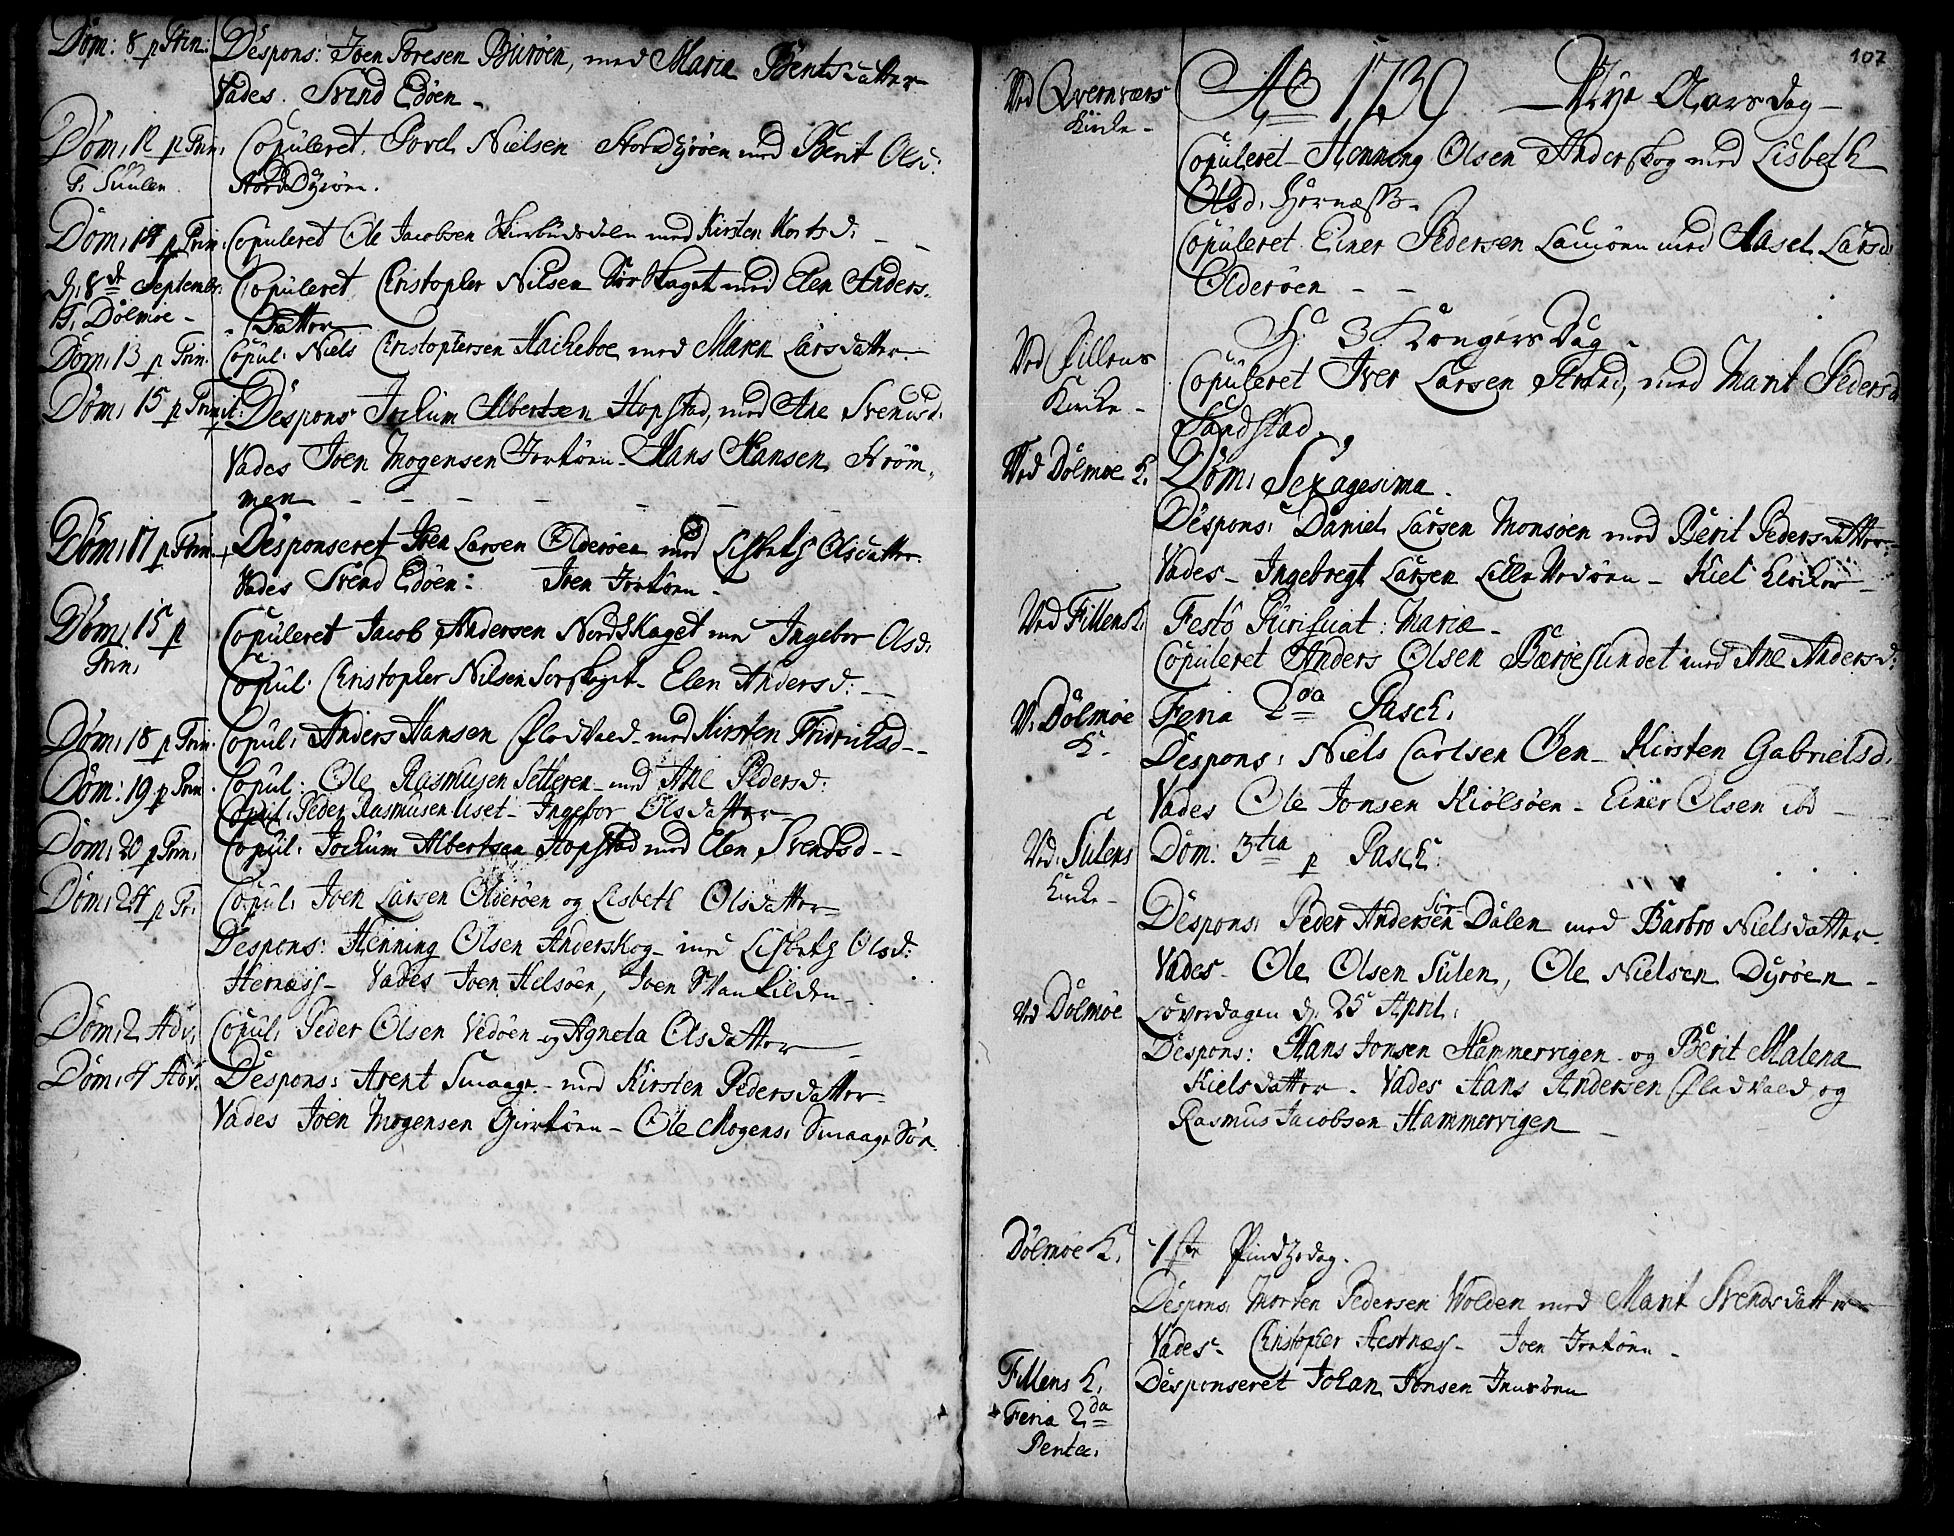 Dom: 8 p Trin: Despons: Joen Toresen Burøen, med Maria Bentsdatter
Vades. Svend Edøen -
Dom: 12 p Trin: Copuleret. Povel Nielsen Norddyrøen med Berit Olsd:
T. Suulen Norddyrøen.
Dom: 18 p Trin: Copuleret Ole Jacobsen med Kirsten d: - -
d. 8de September Copuleret Christopher Nilsen Sørskaget med Elen Anders-
T. Dolmøe - datter
Dom: 13 p Trin. Copul: Niels Christophersen Hacheboe med Maren Larsdatter
Dom: 15 p Trinit: Despons Jochum Albertsen Hopstad, med Ane Svendsd:
Vades Joen Mogensen Jøstøen - Hans Hansen Strøm-
men - - - - - -
Dom: 17 p Trin. Desponseret Joen Larsen Olderøen med Lisbeth Olsdatter
Vades Svend Edøen: Joen Jøstøen -
Dom: 15 p Copuleret Jacob Andersen Nordskaget med Ingebor Olsd:
Trin: Copul: Christopher Nilsen Sørskaget - Elen Andersd: -
Dom: 18 p Trin. Copul: Anders Hansen Fladvaed - med Kirsten Fridrichsd - -
Dom: 19 p Trin. Copul: Ole Rasmusen Setteren - med Ane Pedersd:
Copul: Peder Rasmusen Uset - Ingebor Olsdatter
Dom: 20 p Trin: Copul: Jochum Albertsen Hopstad med Elen Svendsd - -
Dom: 24 p Tr: Copul: Joen Larsen Olderøen og Lisbeth Olsdatter
Despons: Henning Olsen Anderskog - med Lisbeth Olsd:
Hernæss - Vades Joen Helsøen, Joen
Dom: 2 Adv: Copul: Peder Olsen Vedøen og Agneta Olsdatter -
Dom: 4 Adv. Despons: Arent Smaage - med Kirsten Pedersdatter
Vades Joen Mogensen Gjøstøen - Ole Mogens: Smaage Søn
107
Ved Qvernværs Kirke - Ao 1739 - Nye Aars dag -
Copuleret Henning Olsen Anderskog med Lisbeth
Olsd: Hernæss -
Copuleret Einer Pedersen Lamøen med Aasel Larsd:
Olderøen - -
H. 3 Kongers Dag -
Ved Fillens Kirke - Copuleret Iver Larsen Strand, med Marit Pedersd
Sandstad.
Ved Dolmøe K. Dom: Sexagesima.
Despons: Daniel Larsen Monsøen med Berit Pedersdatter -
Vades - Ingebregt Larsen Lille Vedøen - Kiel -
Ved Fillens K. Festo Purificat: Mariæ -
Copuleret Anders Olsen Bærøesundet med Ane Andersd:
V. Dolmøe K - Feria 2da Pasch:
Despons: Niels Carlsen Øen - Kirsten Gabrielsd:
Vades Ole Jonsen Kiølsøen - Einer Olsen ibd -
Ved Sulens Kirke - Dom: 3tia p Pasch:
Despons: Peder Andersen Sør-Dalen med Barbro Nielsdatter
Vades - Ole Olsen Sulen, Ole Nielsen Dyrøen -
Ved Dolmøe Løverdagen d. 25 April:
Despons: Hans Jonsen Hammervigen - og Berit Malena
Kielsdatter. Vades Hans Andersen Fladvaed, og
Rasmus Jacobsen Hammervigen -
Dolmøe K. 1ste Pindsedag.
Despons: Morten Pedersen Wolden med Marit Svendsdatter
Vades - Christopher Hestnæss - Joen Jøstøen -
Fillens K. Desponseret Johan Jonsen
Feria 2da
Pentec: